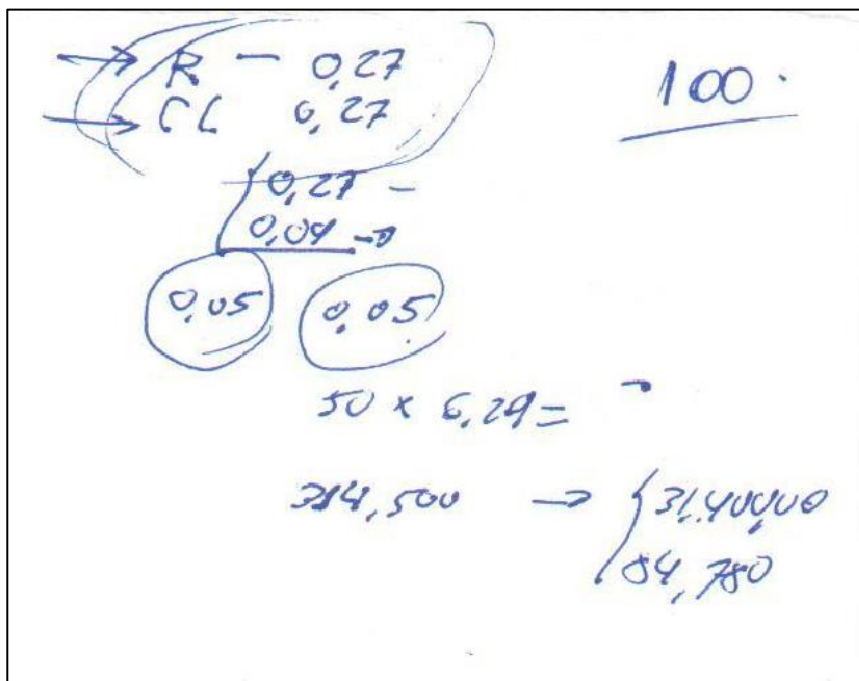 → R - 0,27
100.
→ CL 0,27
0,27 -
0,04 →
0,05 0,05
50 x 6,29 =
314,500 → 31,400,00
84,780